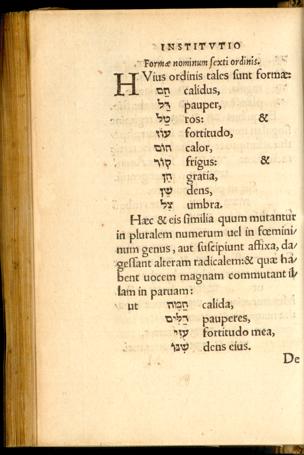 INSTITVTIO
Formæ nominum sexti ordinis.
HVius ordinis tales sunt formæ:
חַם calidus,
דַּל pauper,
טַל ros: &
עוֹז fortitudo,
חוֹם calor,
קוֹר frigus: &
חֵן gratia,
שֵׁן dens,
צֵל umbra.
Hæc & eis similia quum mutantur
in pluralem numerum uel in fœmini/
num genus, aut suscipiunt affixa, da/
gessant alteram radicalem: & quæ ha/
bent uocem magnam commutant il/
lam in paruam:
ut חַמָּה calida,
דַּלִּים pauperes,
עֻזִּי fortitudo mea,
שִׁנּוֹ dens eius.
De